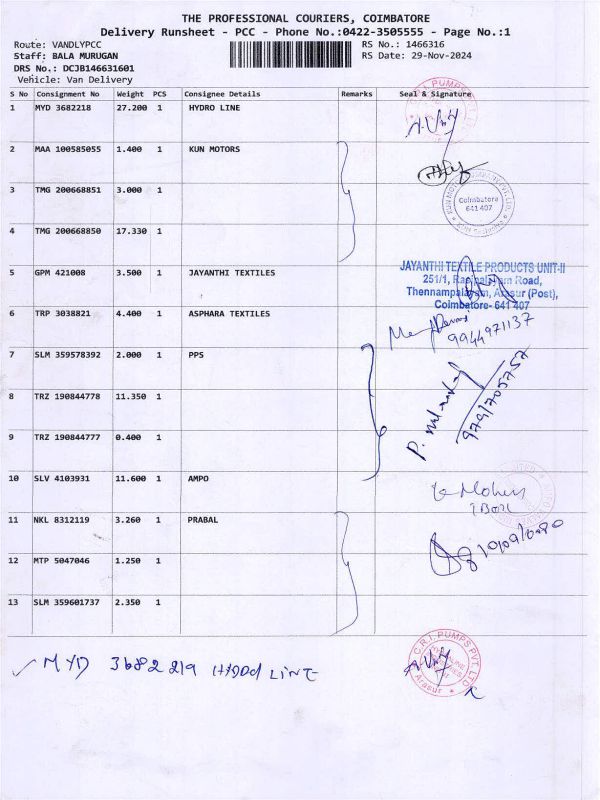 THE PROFESSIONAL COURIERS, COIMBATORE
Delivery Runsheet - PCC - Phone No.:0422-3505555 - Page No.:1
Route: VANDLYPCC
RS No.: 1466316
Staff: BALA MURUGAN
RS Date: 29-Nov-2024
DRS No.: DCJB146631601
Vehicle: Van Delivery
S No Consignment No Weight PCS Consignee Details Remarks Seal & Signature
1 MYD 3682218 27.200 1 HYDRO LINE
2 MAA 100585055 1.400 1 KUN MOTORS
3 TMG 200668851 3.000 1
Coimbatore
641 407
4 TMG 200668850 17.330 1
5 GPM 421008 3.500 1 JAYANTHI TEXTILES
JAYANTHI TEXTILE PRODUCTS UNIT-II
251/1, Road,
Thennampalayam, Arasur (Post),
Coimbatore- 641 407
6 TRP 3038821 4.400 1 ASPHARA TEXTILES
9944971137
7 SLM 359578392 2.000 1 PPS
8 TRZ 190844778 11.350 1
9 TRZ 190844777 0.400 1
10 SLV 4103931 11.600 1 AMPO
11 NKL 8312119 3.260 1 PRABAL
12 MTP 5047046 1.250 1
13 SLM 359601737 2.350 1
MYD 3682219 HYDRO LINE
C.R.I. PUMPS PVT. LTD
Arasur